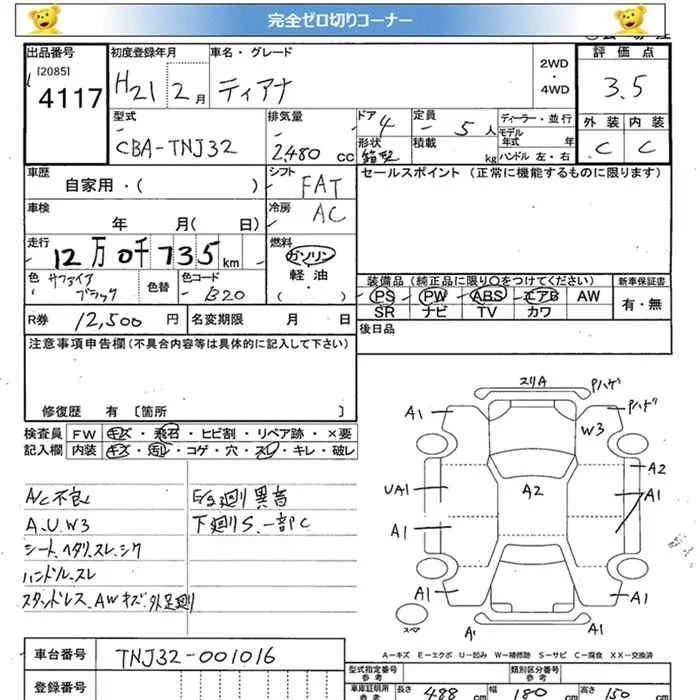 完全ゼロ切りコーナー
出品番号
[2085]
4117
初度登録年月
H21 2月
車名・グレード
ティアナ
2WD
・
4WD
評価点
3.5
外装 内装
C C
型式
CBA-TNJ32
排気量
2480 cc
ドア 4
形状 箱型
定員 5人
積載 kg
ディーラー・並行
モデル年式 年
ハンドル 左・右
車歴
自家用・( )
シフト FAT
車検
年 月( 日)
冷房 AC
走行
12万0千735km
燃料
ガソリン
軽油
( ・ )
色 サファイアブラック
色替
色コード B20
セールスポイント (正常に機能するものに限ります)
装備品 (純正品に限り○をつけてください)
PS PW ABS エアB AW
SR ナビ TV カワ
新車保証書
有・無
R券 12,500 円
名変期限 月 日
後日品
注意事項申告欄(不具合内容等は具体的に記入して下さい)
修復歴 有 [箇所 ]
検査員 FW キズ・飛石・ヒビ割・リペア跡・×要
記入欄 内装 キズ・汚レ・コゲ・穴・スレ・キレ・破レ
A/C不良
A.U.W3
シート、ヘタリ、スレ、シワ
ハンドル、スレ
スタッドレス、AWキズ、外足廻り
E/g廻り異音
下廻りS、一部C
スリA
Pハゲ
Pハゲ
A1
W3
A2
A2
UA1
A1
A1
A1
A1
スペア
A1
A1
A-キズ E-エクボ U-凹み W-補修跡 S-サビ C-腐食 XX-交換済
車台番号
TNJ32-001016
登録番号
型式指定番号
参考
類別区分番号
参考
車庫証明用
参考
長さ 488 cm
幅 180 cm
高さ 150 cm